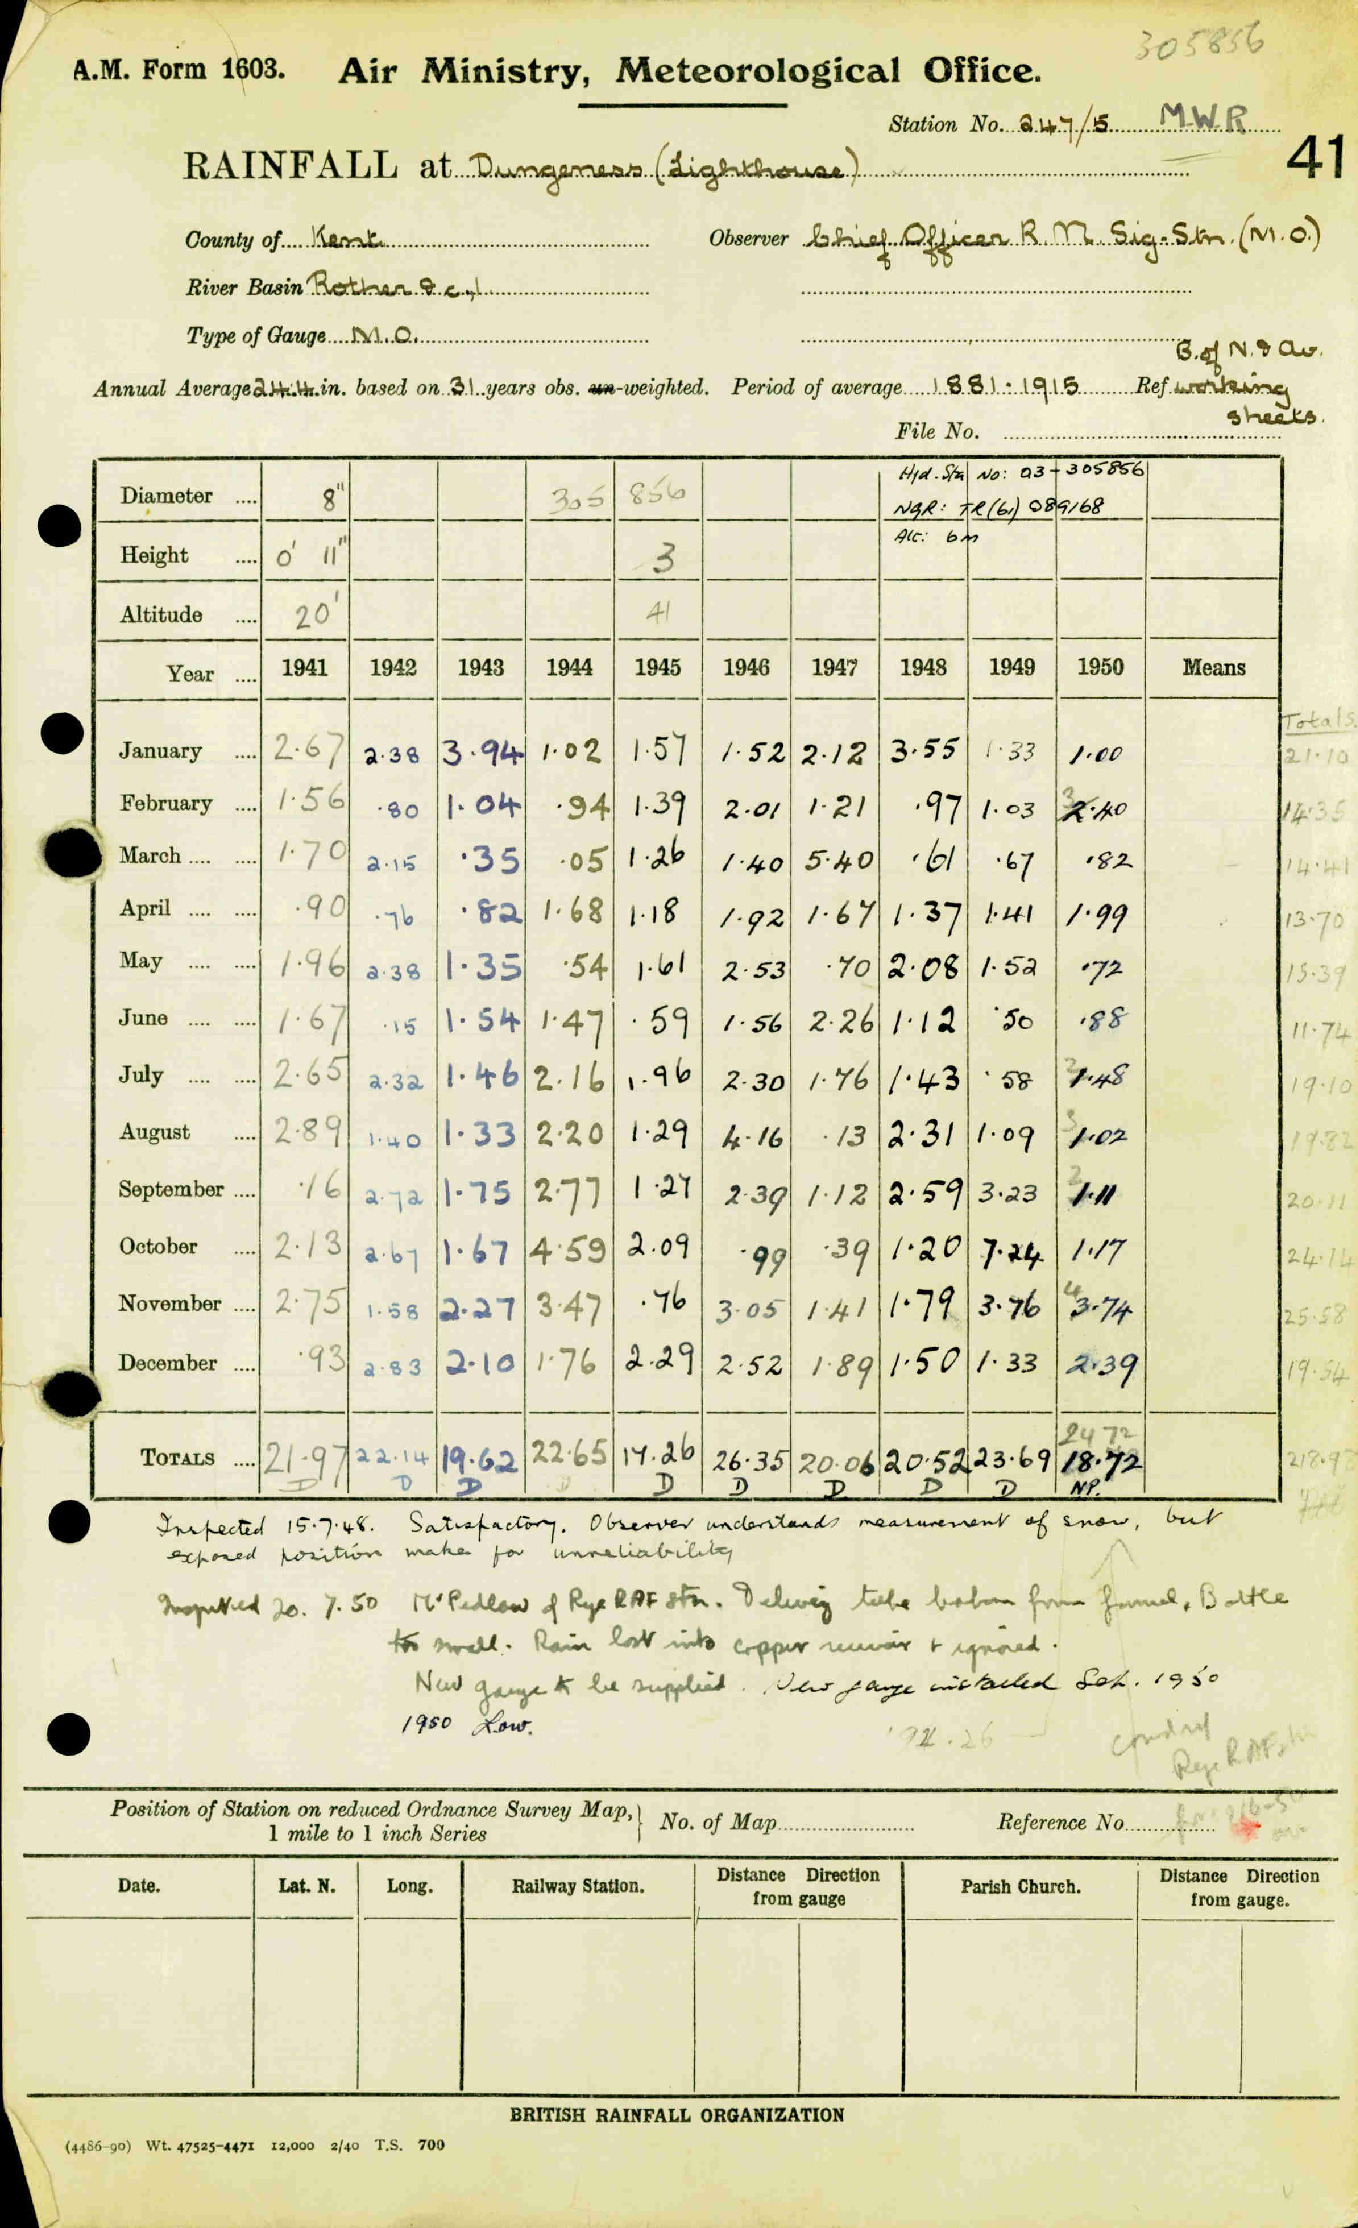 305856
A.M. Form 1603. Air Ministry, Meteorological Office.
Station No. 247/15 M.W.R
41
RAINFALL at Dungeness (Lighthouse)
County of Kent Observer Chief Officer R. N. Sig. Stn. (M.O.)
River Basin Rother &c.,1
Type of Gauge M.O.
B. of N. & Av.
Annual Average 24.4 in. based on 31 years obs. un-weighted. Period of average 1881-1915 Ref working
sheets.
File No.
Hyd. Sta No: 03-305856
Diameter .... 8" 305 856
NGR: TR(61) 089168
Alt: 6m
Height .... 0' 11" 3
Altitude .... 20' 41
Year .... 1941 1942 1943 1944 1945 1946 1947 1948 1949 1950 Means
Totals
January .... 2.67 2.38 3.94 1.02 1.57 1.52 2.12 3.55 1.33 1.00 21.10
February .... 1.56 .80 1.04 .94 1.39 2.01 1.21 .97 1.03 3 2.40 14.35
March .... .... 1.70 2.15 .35 .05 1.26 1.40 5.40 .61 .67 .82 14.41
April .... .... .90 .76 .82 1.68 1.18 1.92 1.67 1.37 1.41 1.99 13.70
May .... .... 1.96 2.38 1.35 .54 1.61 2.53 .70 2.08 1.52 .72 15.39
June .... .... 1.67 .15 1.54 1.47 .59 1.56 2.26 1.12 .50 .88 11.74
July .... .... 2.65 2.32 1.46 2.16 1.96 2.30 1.76 1.43 .58 2 1.48 19.10
August .... 2.89 1.40 1.33 2.20 1.29 4.16 .13 2.31 1.09 3 1.02 19.82
September .... .16 2.72 1.75 2.77 1.27 2.39 1.12 2.59 3.23 2 1.11 20.11
October .... 2.13 2.67 1.67 4.59 2.09 .99 .39 1.20 7.24 1.17 24.14
November .... 2.75 1.58 2.27 3.47 .76 3.05 1.41 1.79 3.76 4 3.74 25.58
December .... .93 2.83 2.10 1.76 2.29 2.52 1.89 1.50 1.33 2.39 19.54
24 72
TOTALS .... 21.97 22.14 19.62 22.65 17.26 26.35 20.06 20.52 23.69 18.72 218.98
D D D D D D D D NP.
Inspected 15.7.48. Satisfactory. Observer understands measurement of snow, but
exposed position makes for unreliability
Inspected 20. 7. 50 Mr Pedlow of Rye RAF Stn. Delivery tube broken from funnel, Bottle
too small. Rain lost into copper receiver & ignored.
New gauge to be supplied. New gauge installed Sep. 1950
1950 Low.
Rye RAF Stn
Position of Station on reduced Ordnance Survey Map, No. of Map Reference No.
1 mile to 1 inch Series
Date. Lat. N. Long. Railway Station. Distance Direction from gauge Parish Church. Distance Direction from gauge.
BRITISH RAINFALL ORGANIZATION
(4486-90) Wt. 47525-4471 12,000 2/40 T.S. 700